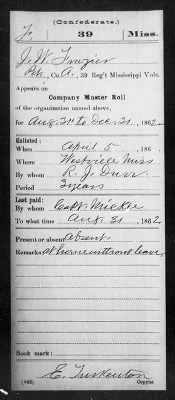 (Confederate.)
F. 39 Miss.
J. W. Frazier
Co. A, 39 Reg't Mississippi Vols.
Appears on
Company Muster Roll
of the organization named above,
for Aug. 31st to Dec. 31, 1862.
Enlisted:
When April 5, 186
Where Westville Miss.
By whom R. J. Durr
Period 3 years
Last paid:
By whom Capt. Mickle
To what time Aug. 31, 1862
Present or absent absent.
Remarks at home without leave
Book mark:
E. Turkenton
(642) Copyist